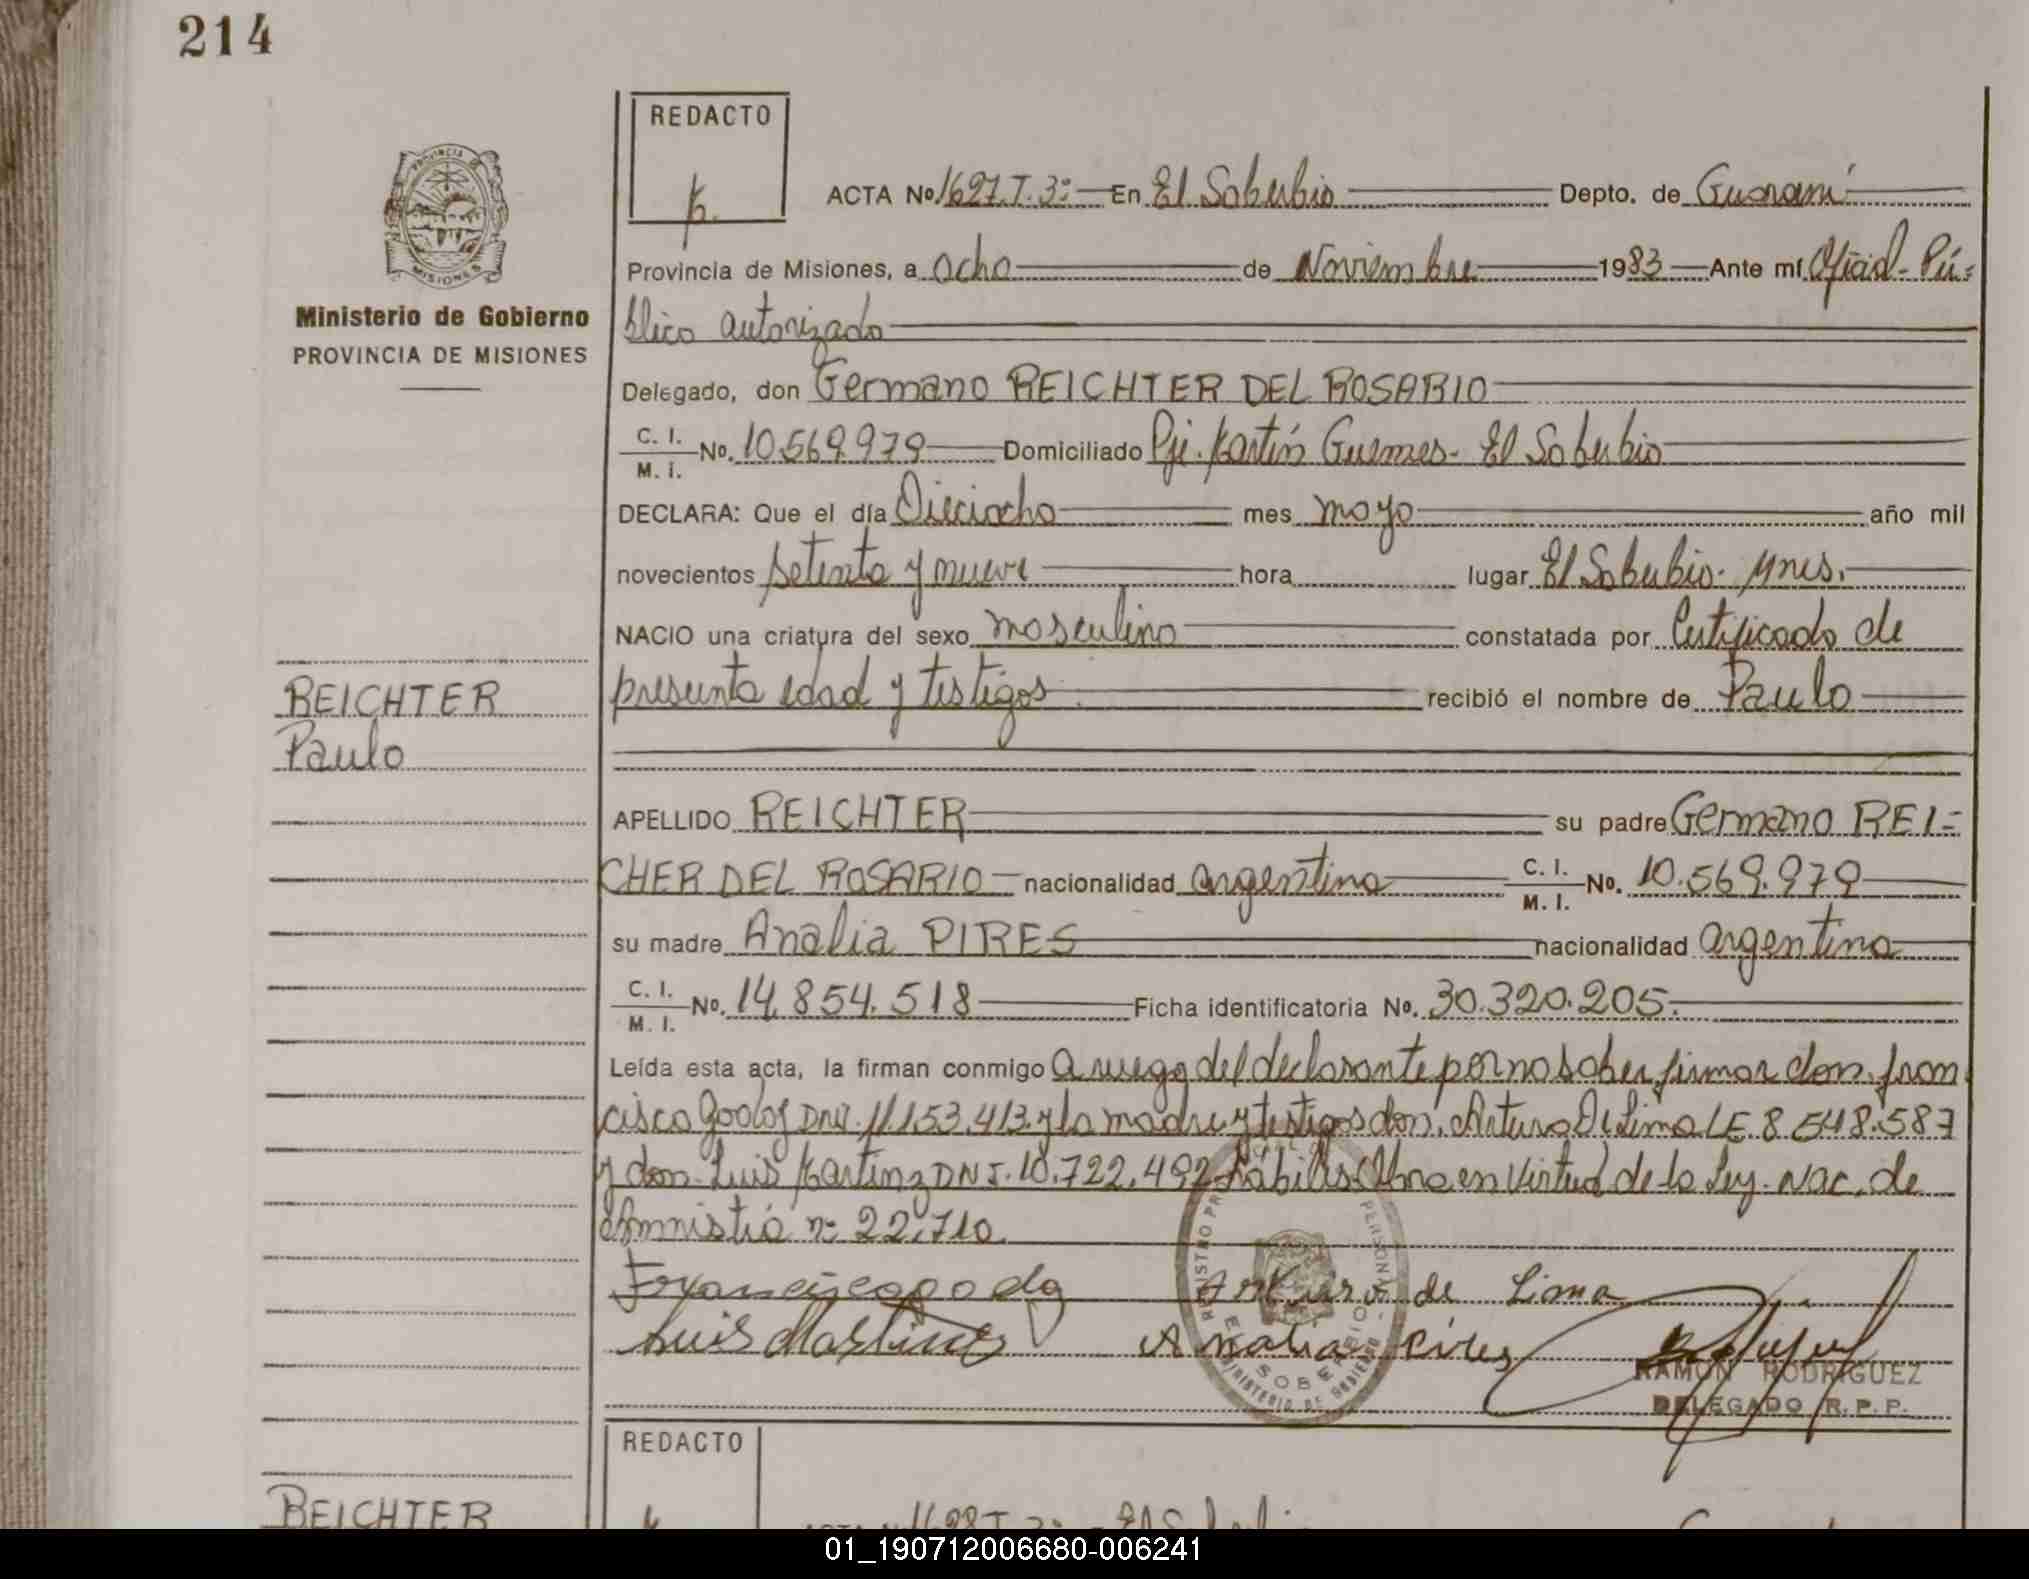 214
REDACTO
PROVINCIA DE
MISIONES
ACTA Nº 1627.T.3º En El Soberbio Depto. de Guarani
Provincia de Misiones, a ocho de Noviembre 1983 Ante mí Oficial Pú=
blico autorizado
Ministerio de Gobierno
PROVINCIA DE MISIONES
Delegado, don Germano REICHTER DEL ROSARIO
C. I. M. I. No. 10.569.979 Domiciliado Pje. Martín Guemes - El Soberbio
DECLARA: Que el día Dieciocho mes mayo año mil
novecientos setenta y nueve hora lugar El Soberbio - Mnes.
NACIO una criatura del sexo masculino constatada por Certificado de
presunta edad y testigos recibió el nombre de Paulo
REICHTER
Paulo
APELLIDO REICHTER su padre Germano REI=
CHER DEL ROSARIO nacionalidad argentina C. I. M. I. No. 10.569.979
su madre Analia PIRES nacionalidad argentina
C. I. M. I. No. 14.854.518 Ficha identificatoria No. 30.320.205.
Leída esta acta, la firman conmigo a ruego del declarante por no saber firmar don Fran
cisco Godoy DNI. 11.153.413 y la madre y testigos don Arturo De Lima LE. 8.548.587
y don Luis Martinz DNI. 10.722.492 hábiles. Obra en virtud de la Ley. Nac. de
Amnistía nº 22.710.
Arturo de Lima
Luis Martinez Analia Pires
SOBERBIO
MINISTERIO DE GOBIERNO
RAMON RODRIGUEZ
DELEGADO R. P. P.
REDACTO
REICHTER
01_190712006680-006241